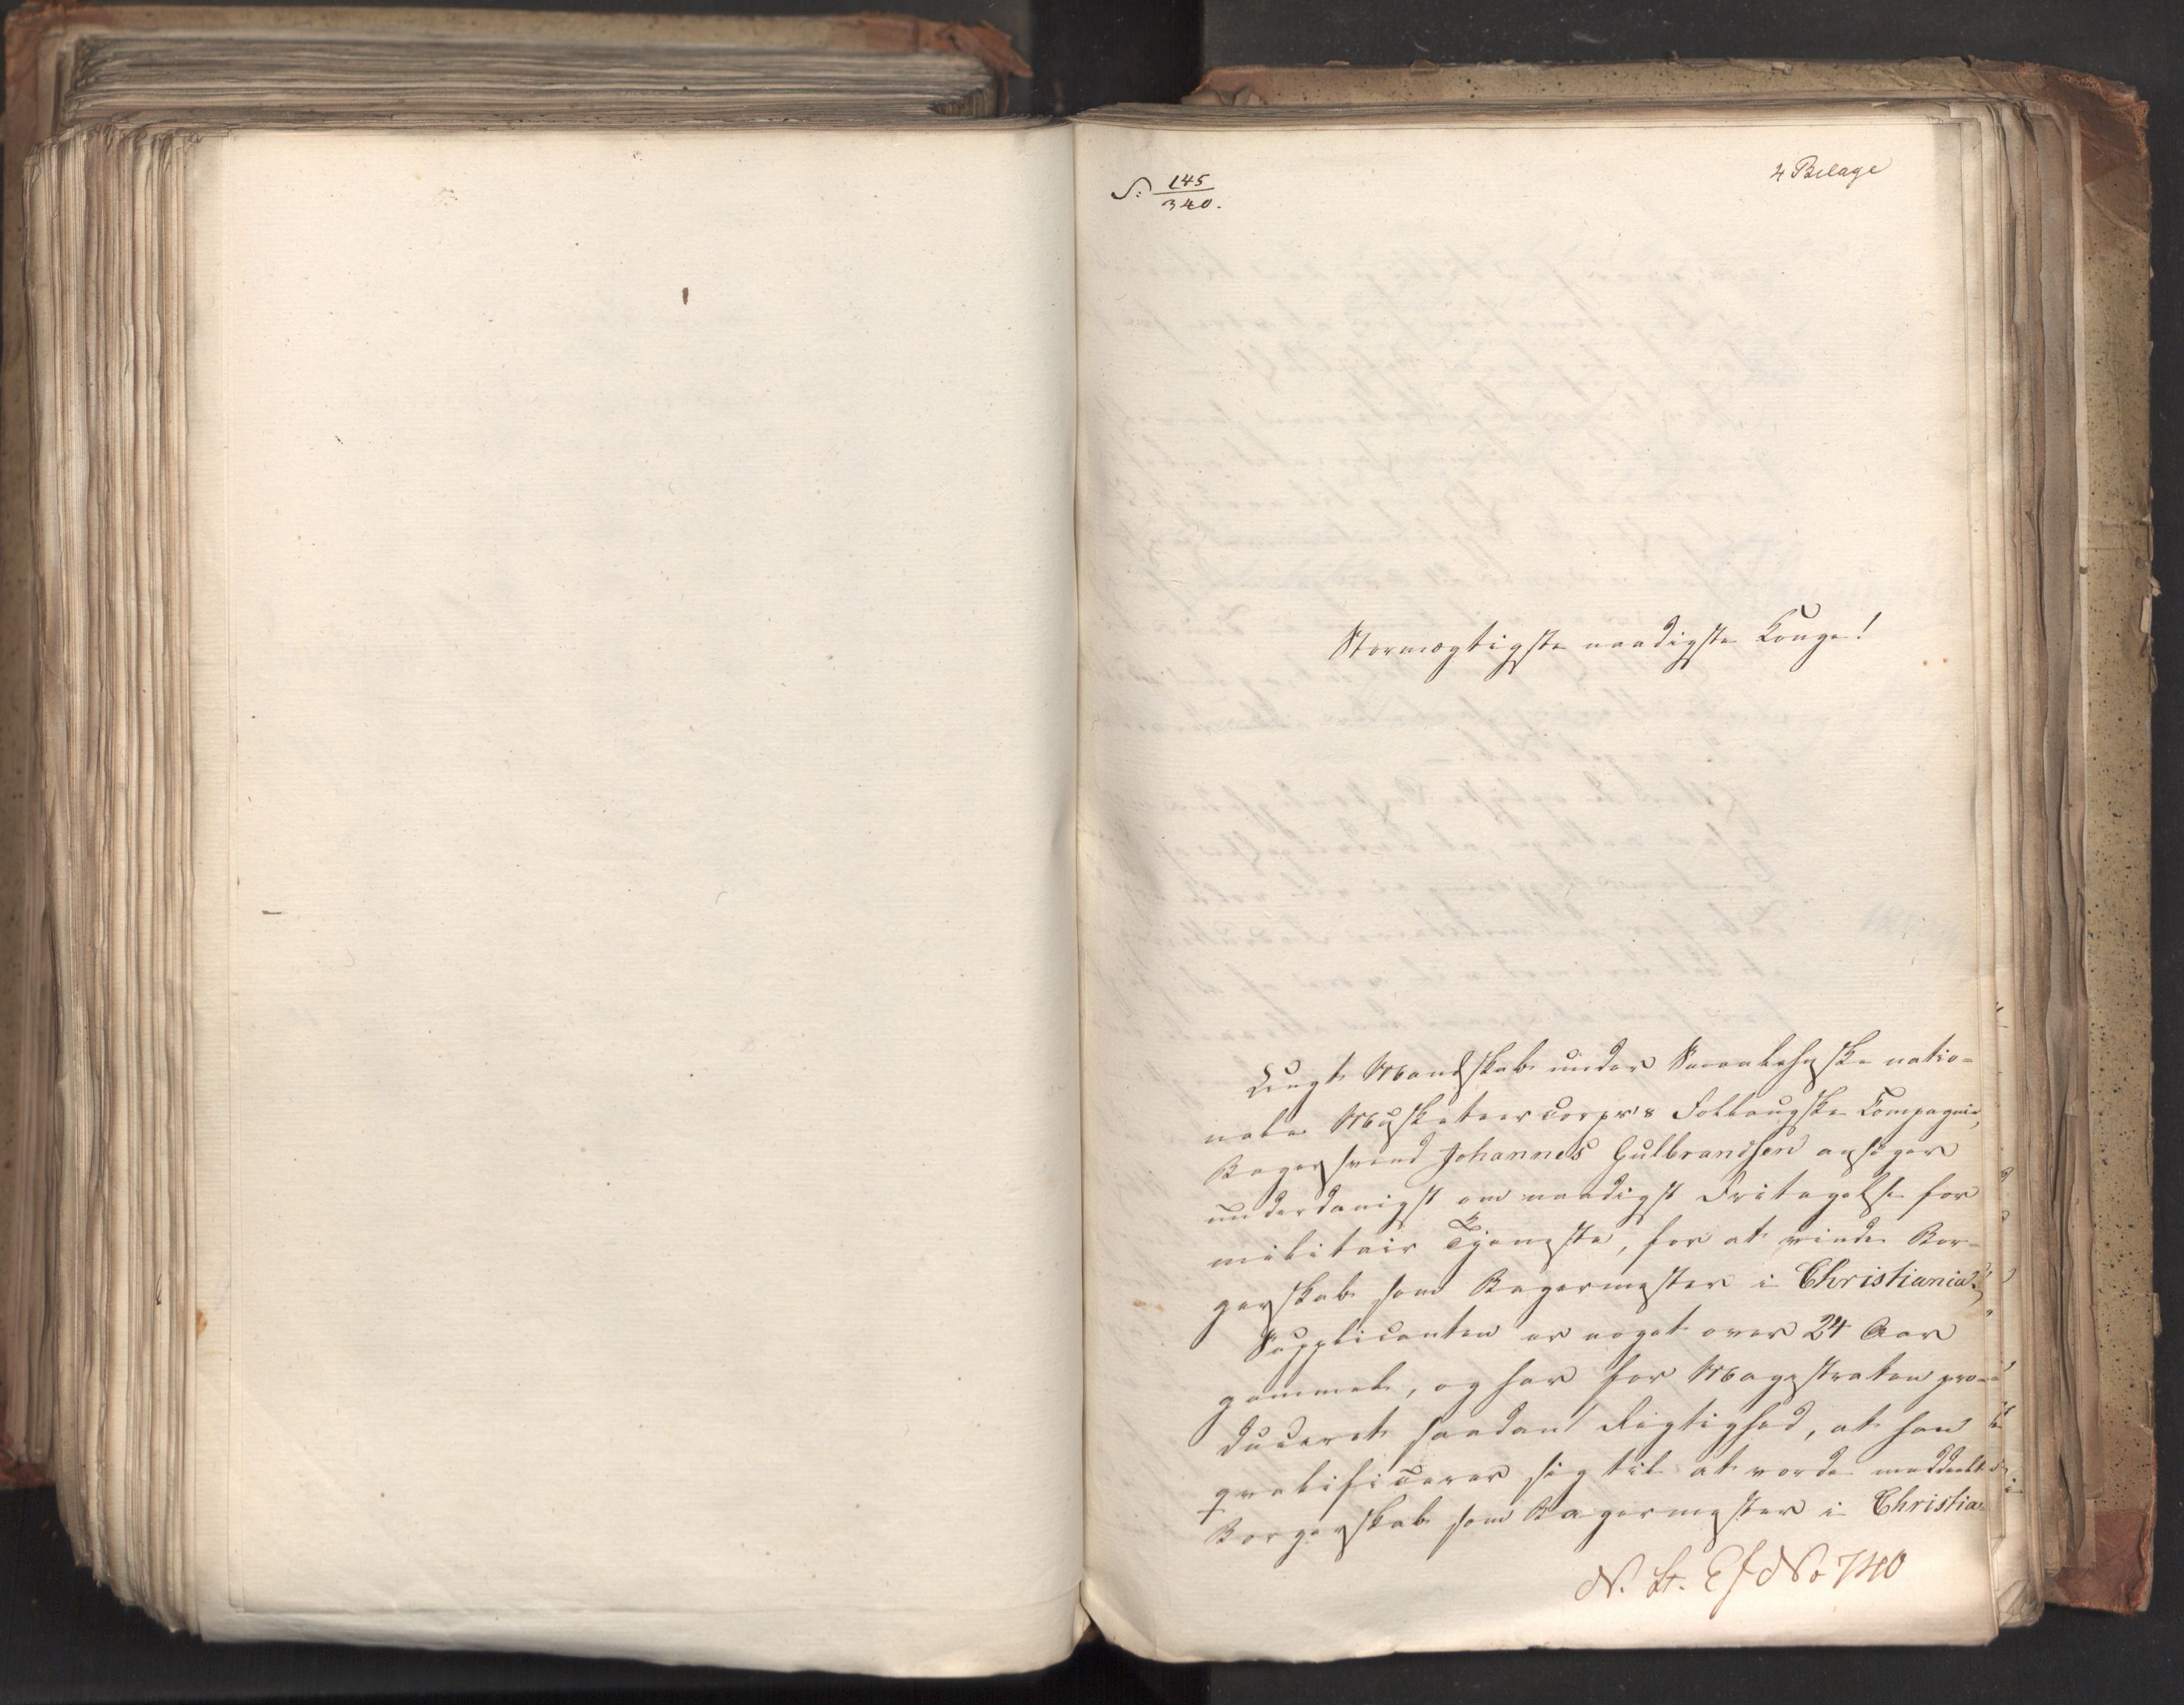 S: 145/340.
4 Bilage
Stormægtigste naadigste Konge!
Lægds Mandskab under Smaalehnske natio-
nale Musketeercorps's Follougske Compagnie,
Bagersvend Johannes Gulbrandsen ansøger
underdanigst om naadigst Fritagelse for
militair Tjeneste, for at vinde Bor-
gerskab som Bagermester i Christiania.
Supplicanten er noget over 24 Aar
gammel, og har for Magistraten pro-
duceret saadan Rigtighed, at han
qvalificerer sig til at vorde meddeelt
Borgerskab som Bagermester i Christia-
N. St. Ef No 740